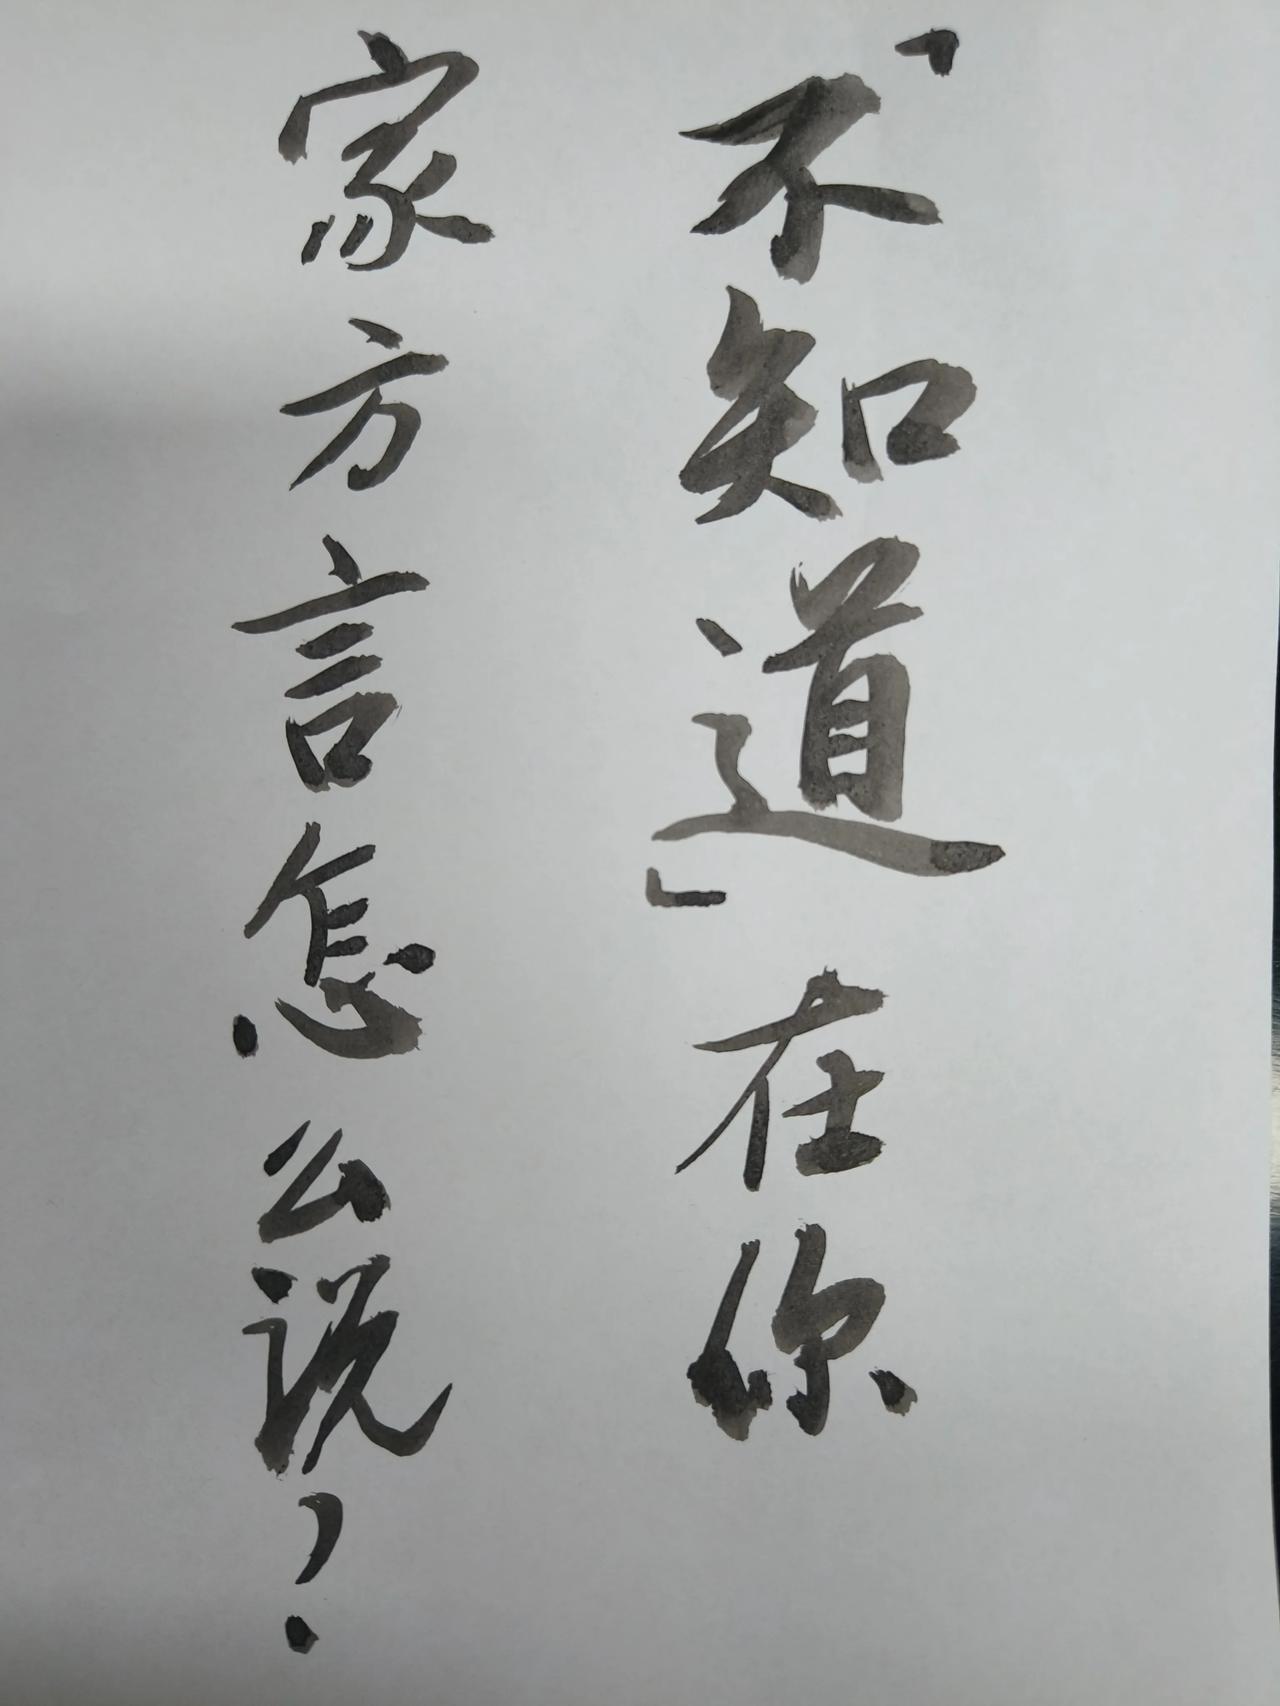 「不知道」在你
家方言怎么说?